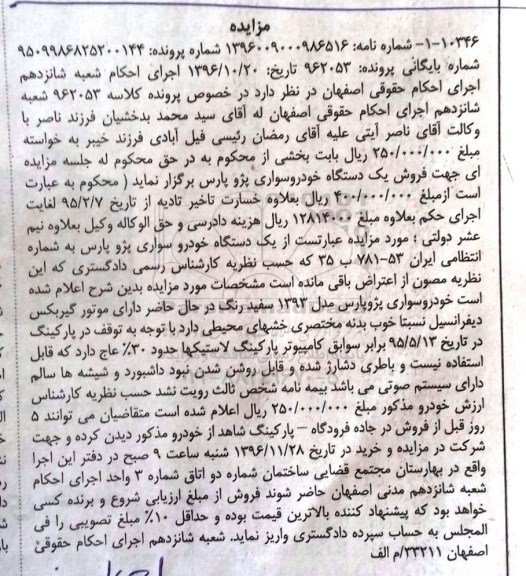 مزایده
۱۰۳۴۶-۱- شماره نامه: ۱۳۹۶۰۰۹۰۰۰۹۸۶۵۱۶ شماره پرونده: ۹۵۰۹۹۸۶۸۲۵۲۰۰۱۴۴
شماره بایگانی پرونده: ۹۶۲۰۵۳ تاریخ: ۱۳۹۶/۱۰/۲۰ اجرای احکام شعبه شانزدهم
اجرای احکام حقوقی اصفهان در نظر دارد در خصوص پرونده کلاسه ۹۶۲۰۵۳ شعبه
شانزدهم اجرای احکام حقوقی اصفهان له آقای سید محمد بدخشیان فرزند ناصر با
وکالت آقای ناصر آیتی علیه آقای رمضان رئیسی فیل آبادی فرزند خیبر به خواسته
مبلغ ۲۵۰/۰۰۰/۰۰۰ ریال بابت بخشی از محکوم به در حق محکوم له جلسه مزایده
ای جهت فروش یک دستگاه خودروسواری پژو پارس برگزار نماید ( محکوم به عبارت
است ازمبلغ ۴۰۰/۰۰۰/۰۰۰ ریال بعلاوه خسارت تاخیر تادیه از تاریخ ۹۵/۲/۷ لغایت
اجرای حکم بعلاوه مبلغ ۱۲۸۱۴۰۰۰ ریال هزینه دادرسی و حق الوکاله وکیل بعلاوه نیم
عشر دولتی ؛ مورد مزایده عبارتست از یک دستگاه خودرو سواری پژو پارس به شماره
انتظامی ایران ۵۳-۷۸۱ ب ۳۵ که حسب نظریه کارشناس رسمی دادگستری که این
نظریه مصون از اعتراض باقی مانده است مشخصات مورد مزایده بدین شرح اعلام شده
است خودروسواری پژوپارس مدل ۱۳۹۳ سفید رنگ در حال حاضر دارای موتور گیربکس
دیفرانسیل نسبتا خوب بدنه مختصری خشهای محیطی دارد با توجه به توقف در پارکینگ
در تاریخ ۹۵/۵/۱۳ برابر سوابق کامپیوتر پارکینگ لاستیکها حدود ۳۰٪ عاج دارد که قابل
استفاده نیست و باطری دشارژ شده و قابل روشن شدن نبود داشبورد و شیشه ها سالم
دارای سیستم صوتی می باشد بیمه نامه شخص ثالث رویت نشد حسب نظریه کارشناس
ارزش خودرو مذکور مبلغ ۲۵۰/۰۰۰/۰۰۰ ریال اعلام شده است متقاضیان می توانند ۵
روز قبل از فروش در جاده فرودگاه – پارکینگ شاهد از خودرو مذکور دیدن کرده و جهت
شرکت در مزایده و خرید در تاریخ ۱۳۹۶/۱۱/۲۸ شنبه ساعت ۹ صبح در دفتر این اجرا
واقع در بهارستان مجتمع قضایی ساختمان شماره دو اتاق شماره ۳ واحد اجرای احکام
شعبه شانزدهم مدنی اصفهان حاضر شوند فروش از مبلغ ارزیابی شروع و برنده کسی
خواهد بود که پیشنهاد کننده بالاترین قیمت بوده و حداقل ۱۰٪ مبلغ تصویبی را فی
المجلس به حساب سپرده دادگستری واریز نماید. شعبه شانزدهم اجرای احکام حقوقی
اصفهان ۳۳۲۱۱/م الف